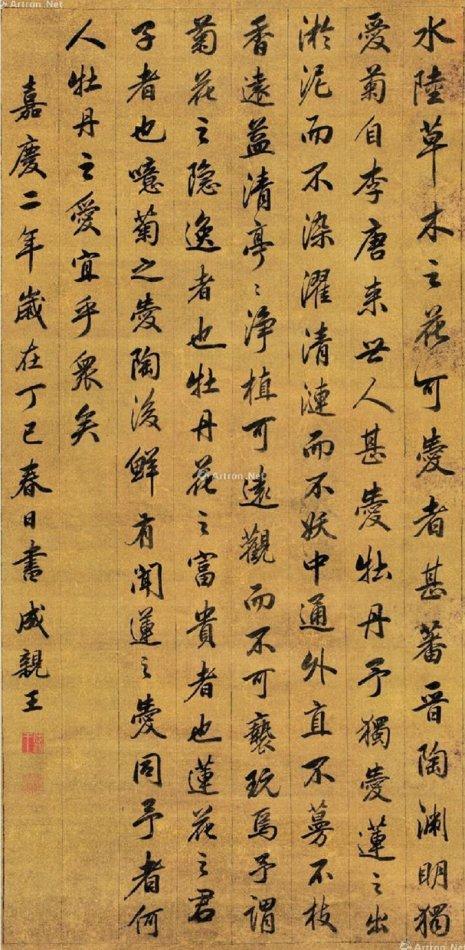 水陸草木之花可愛者甚蕃晉陶淵明獨
愛菊自李唐來世人甚愛牡丹予獨愛蓮之出
淤泥而不染濯清漣而不妖中通外直不蔓不枝
香遠益清亭〻淨植可遠觀而不可褻玩焉予謂
菊花之隐逸者也牡丹花之富貴者也蓮花之君
子者也噫菊之愛陶後鮮有聞蓮之愛同予者何
人牡丹之愛宜乎眾矣
嘉慶二年歲在丁巳春日書成親王
Artron.Net
Artron.Net
Artron.Net